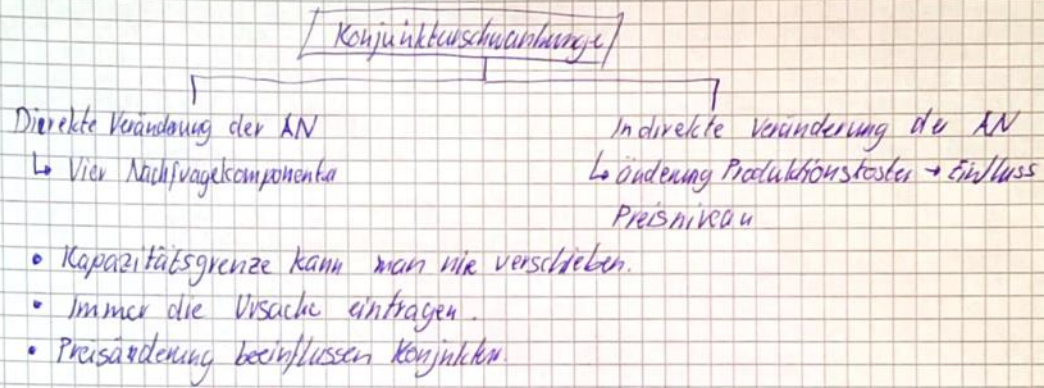 Konjunkturschwankunge
Direkte Veränderung der AN
Indirekte Veränderung der AN
↳ Vier Nachfragekomponente
↳ änderung Produktionskosten → Einfluss
Preisniveau
• Kapazitätsgrenze kann man nie verschieben.
• Immer die Ursache eintragen.
• Preisänderung beeinflussen Konjunktur.